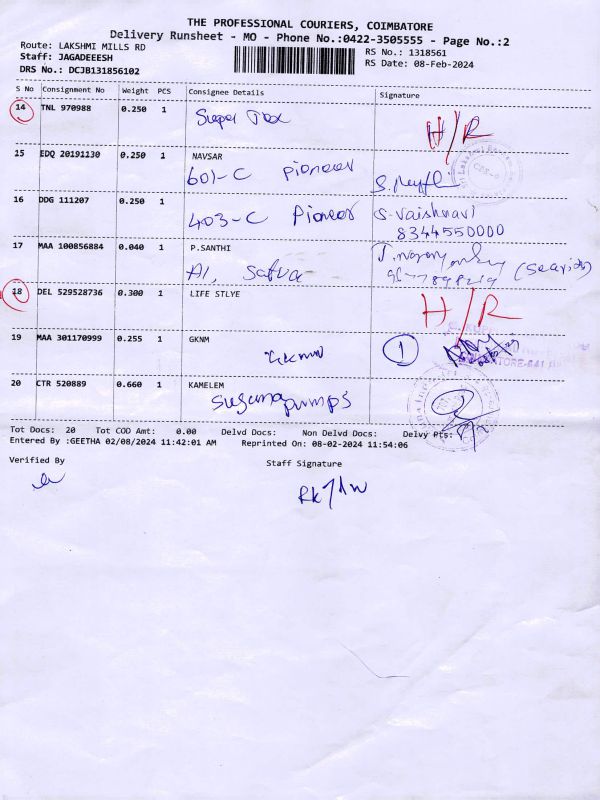 THE PROFESSIONAL COURIERS, COIMBATORE
Delivery Runsheet - MO - Phone No.:0422-3505555 - Page No.:2
Route: LAKSHMI MILLS RD
Staff: JAGADEEESH
DRS No.: DCJB131856102
RS No.: 1318561
RS Date: 08-Feb-2024
S No Consignment No Weight PCS Consignee Details Signature
14 TNL 970988 0.250 1 Super Tex H/R
15 EDQ 20191130 0.250 1 NAVSAR
601-C Pioneer
16 DDG 111207 0.250 1 403-C Pioneer S-Vaishnavi
8344550000
17 MAA 100856884 0.040 1 P.SANTHI
A1, Satva
18 DEL 529528736 0.300 1 LIFE STLYE H/R
19 MAA 301170999 0.255 1 GKNM
Gknm 1
20 CTR 520889 0.660 1 KAMELEM
Suguna Pumps
Tot Docs: 20 Tot COD Amt: 0.00 Delvd Docs: Non Delvd Docs: Delvy Pts:
Entered By :GEETHA 02/08/2024 11:42:01 AM Reprinted On: 08-02-2024 11:54:06
Verified By Staff Signature